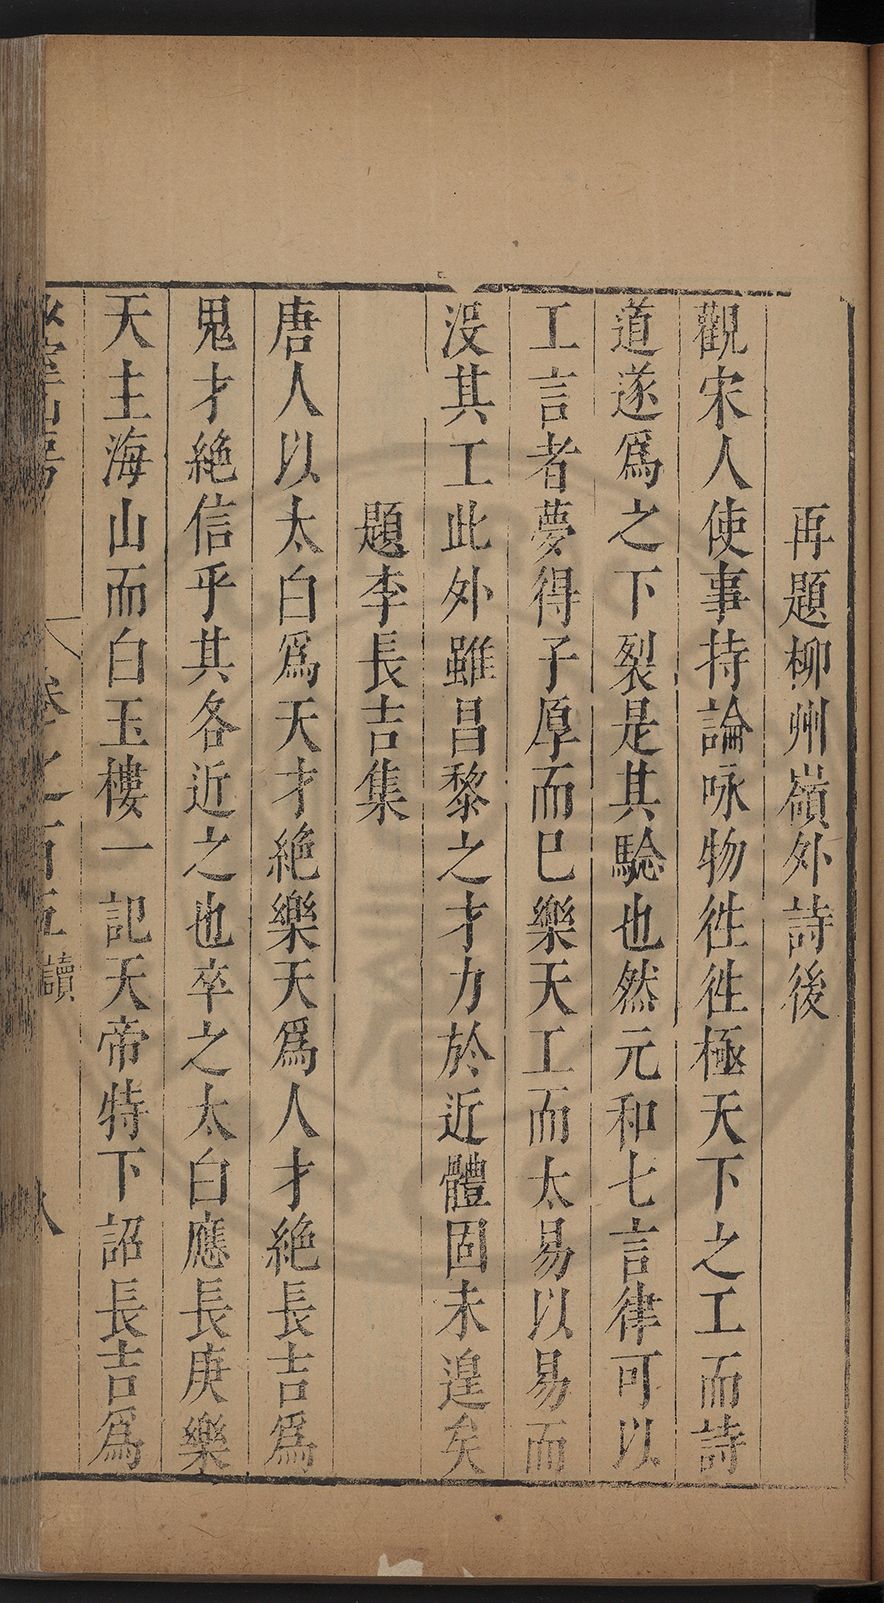 再題柳州嶺外詩後
觀宋人使事持論咏物徃徃極天下之工而詩
道遂爲之下裂是其騐也然元和七言律可以
工言者夢得子厚而巳樂天工而太易以易而
沒其工此外雖昌黎之才力於近體固未遑矣
題李長吉集
唐人以太白爲天才絶樂天爲人才絶長吉爲
鬼才絶信乎其各近之也卒之太白應長庚樂
天主海山而白玉樓一記天帝特下詔長吉爲
卷之百五 讀 八